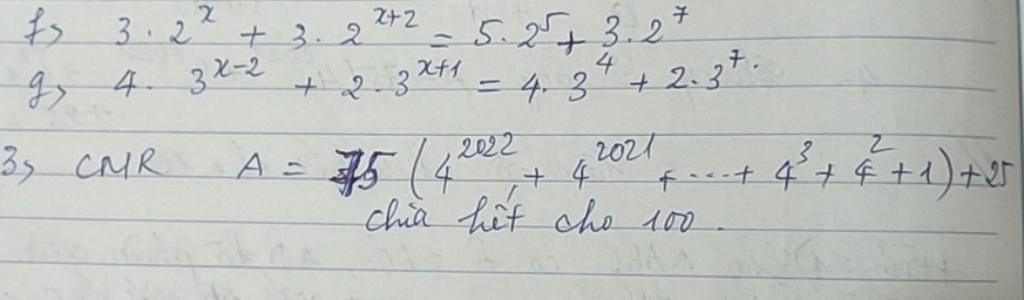 f> 3 · 2^x + 3 · 2^{x+2} = 5 · 2^5 + 3 · 2^7
g> 4 · 3^{x-2} + 2 · 3^{x+1} = 4 · 3^4 + 2 · 3^7.
3> CMR A = 75 (4^{2022} + 4^{2021} + ... + 4^3 + 4^2 + 1) + 25
chia hết cho 100.